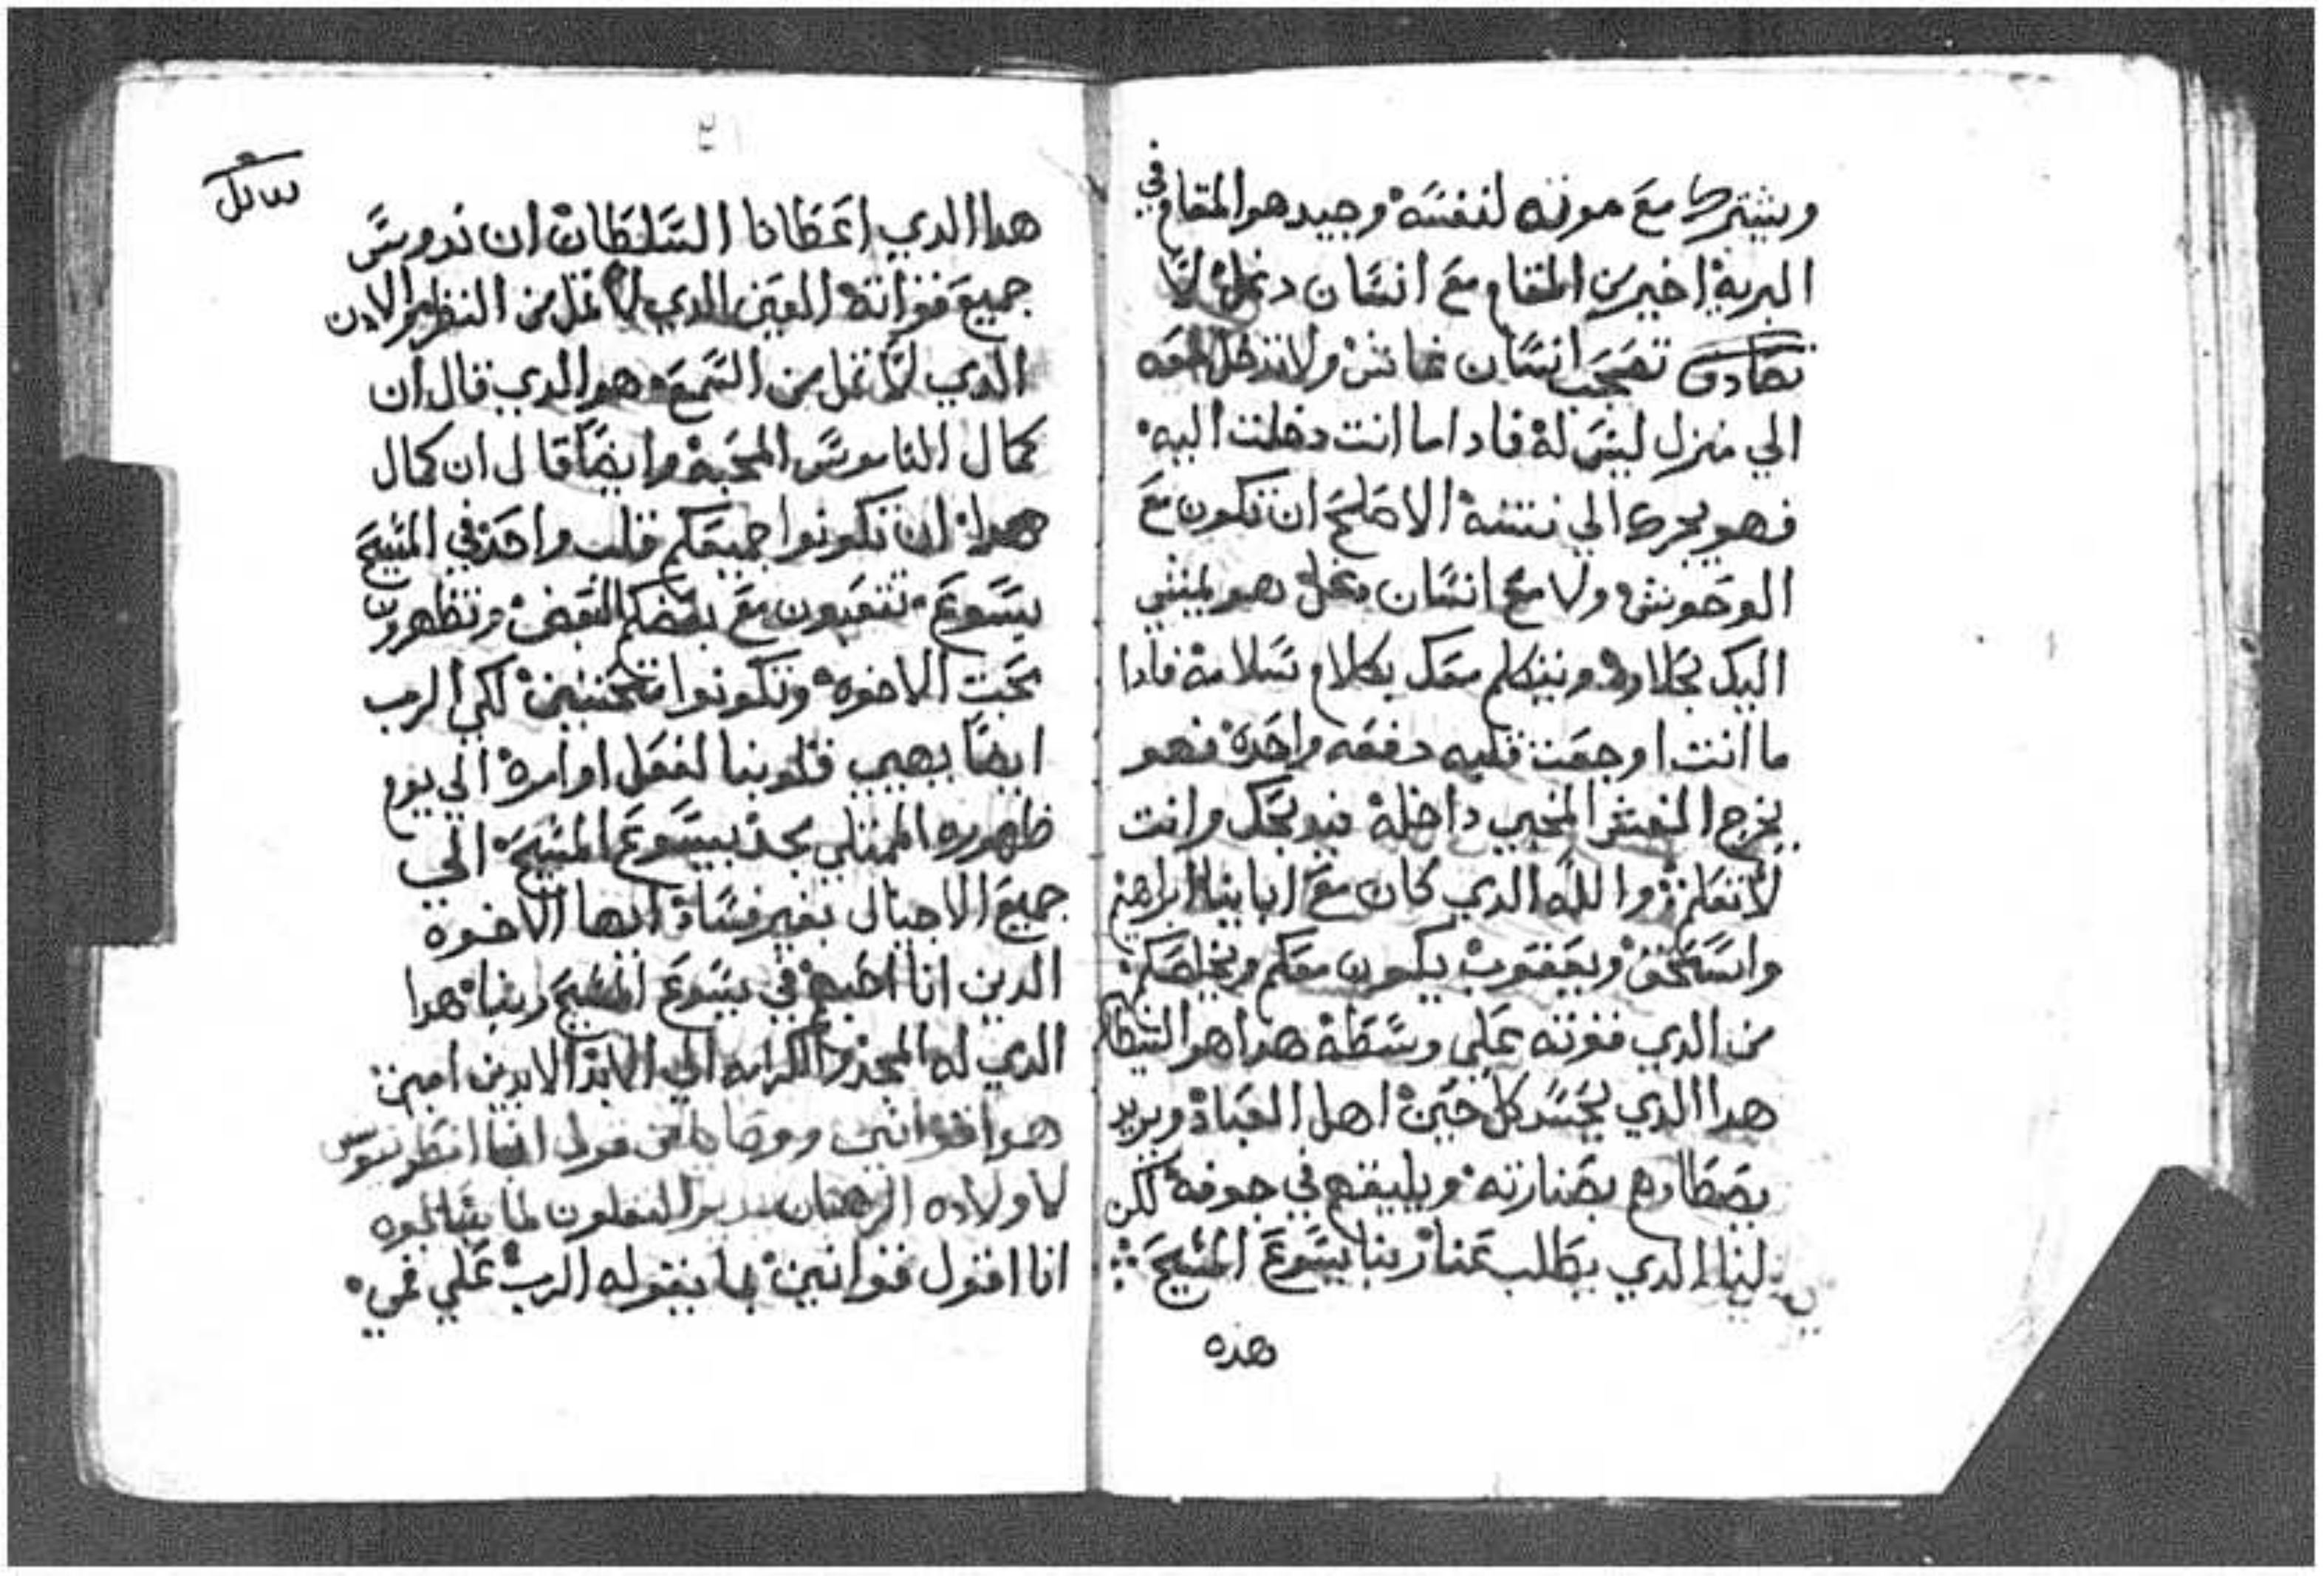 ويشترك مع موته لنفسه وجيد هو المقام في
البرية اخير من المقام مع انسان دغل لا
تصادق تصحب انسان غاش ولا تدخل معه
الي منزل ليس له فادا ما انت دخلت اليه
فهو يجرك الي نتنه الاصلح ان تكون مع
الوحوش ولا مع انسان دغل هو يمشي
اليك بحلاوه ويتكلم معك بكلام سلامة فادا
ما انت اوجعت قلبه دفعه واحدة فهو
يخرج الغش المخبي داخله وانت
لا تعلم والله الدي كان مع ابابنا ابراهيم
واسحق ويعقوب يكون معكم ويخلصكم
من الدي قوته علي وسطه هدا هو الشيطان
هدا الدي يحسد كل حين اهل العبادة ويريد
يصطادهم بصنارته ويليقهم في جوفه لكن
لنا الدي يطلب عنا ربنا يسوع المسيح
هذه
هدا الدي اعطانا السلطان ان ندوس
جميع قواته العين الدي لا تمل من النظر والادن
الدي لا تمل من السمع هو الدي قال ان
كمال الناموس المحبة وايضا قال ان كمال
هدا ان تكونوا جميعكم قلب واحد في المسيح
يسوع تتعبون مع بعضكم البعض وتظهرون
محبت الاخوه وتكونوا متحننين لكي الرب
ايضا يهيي قلوبنا لنعمل اوامره الي يوم
ظهوره الممتلي مجد بيسوع المسيح الي
جميع الاجيال بغير فساد ايها الاخوة
الدين انا احبهم في يسوع المسيح ربنا هدا
الدي له المجد والكرامه الي ابد الابدين امين
هوا قوانين ووصايا من قول ابينا انطونيوس
لاولاده الرهبان بدير النقلون لما سالوه
انا اقول قوانين بما يقوله الرب علي فمي